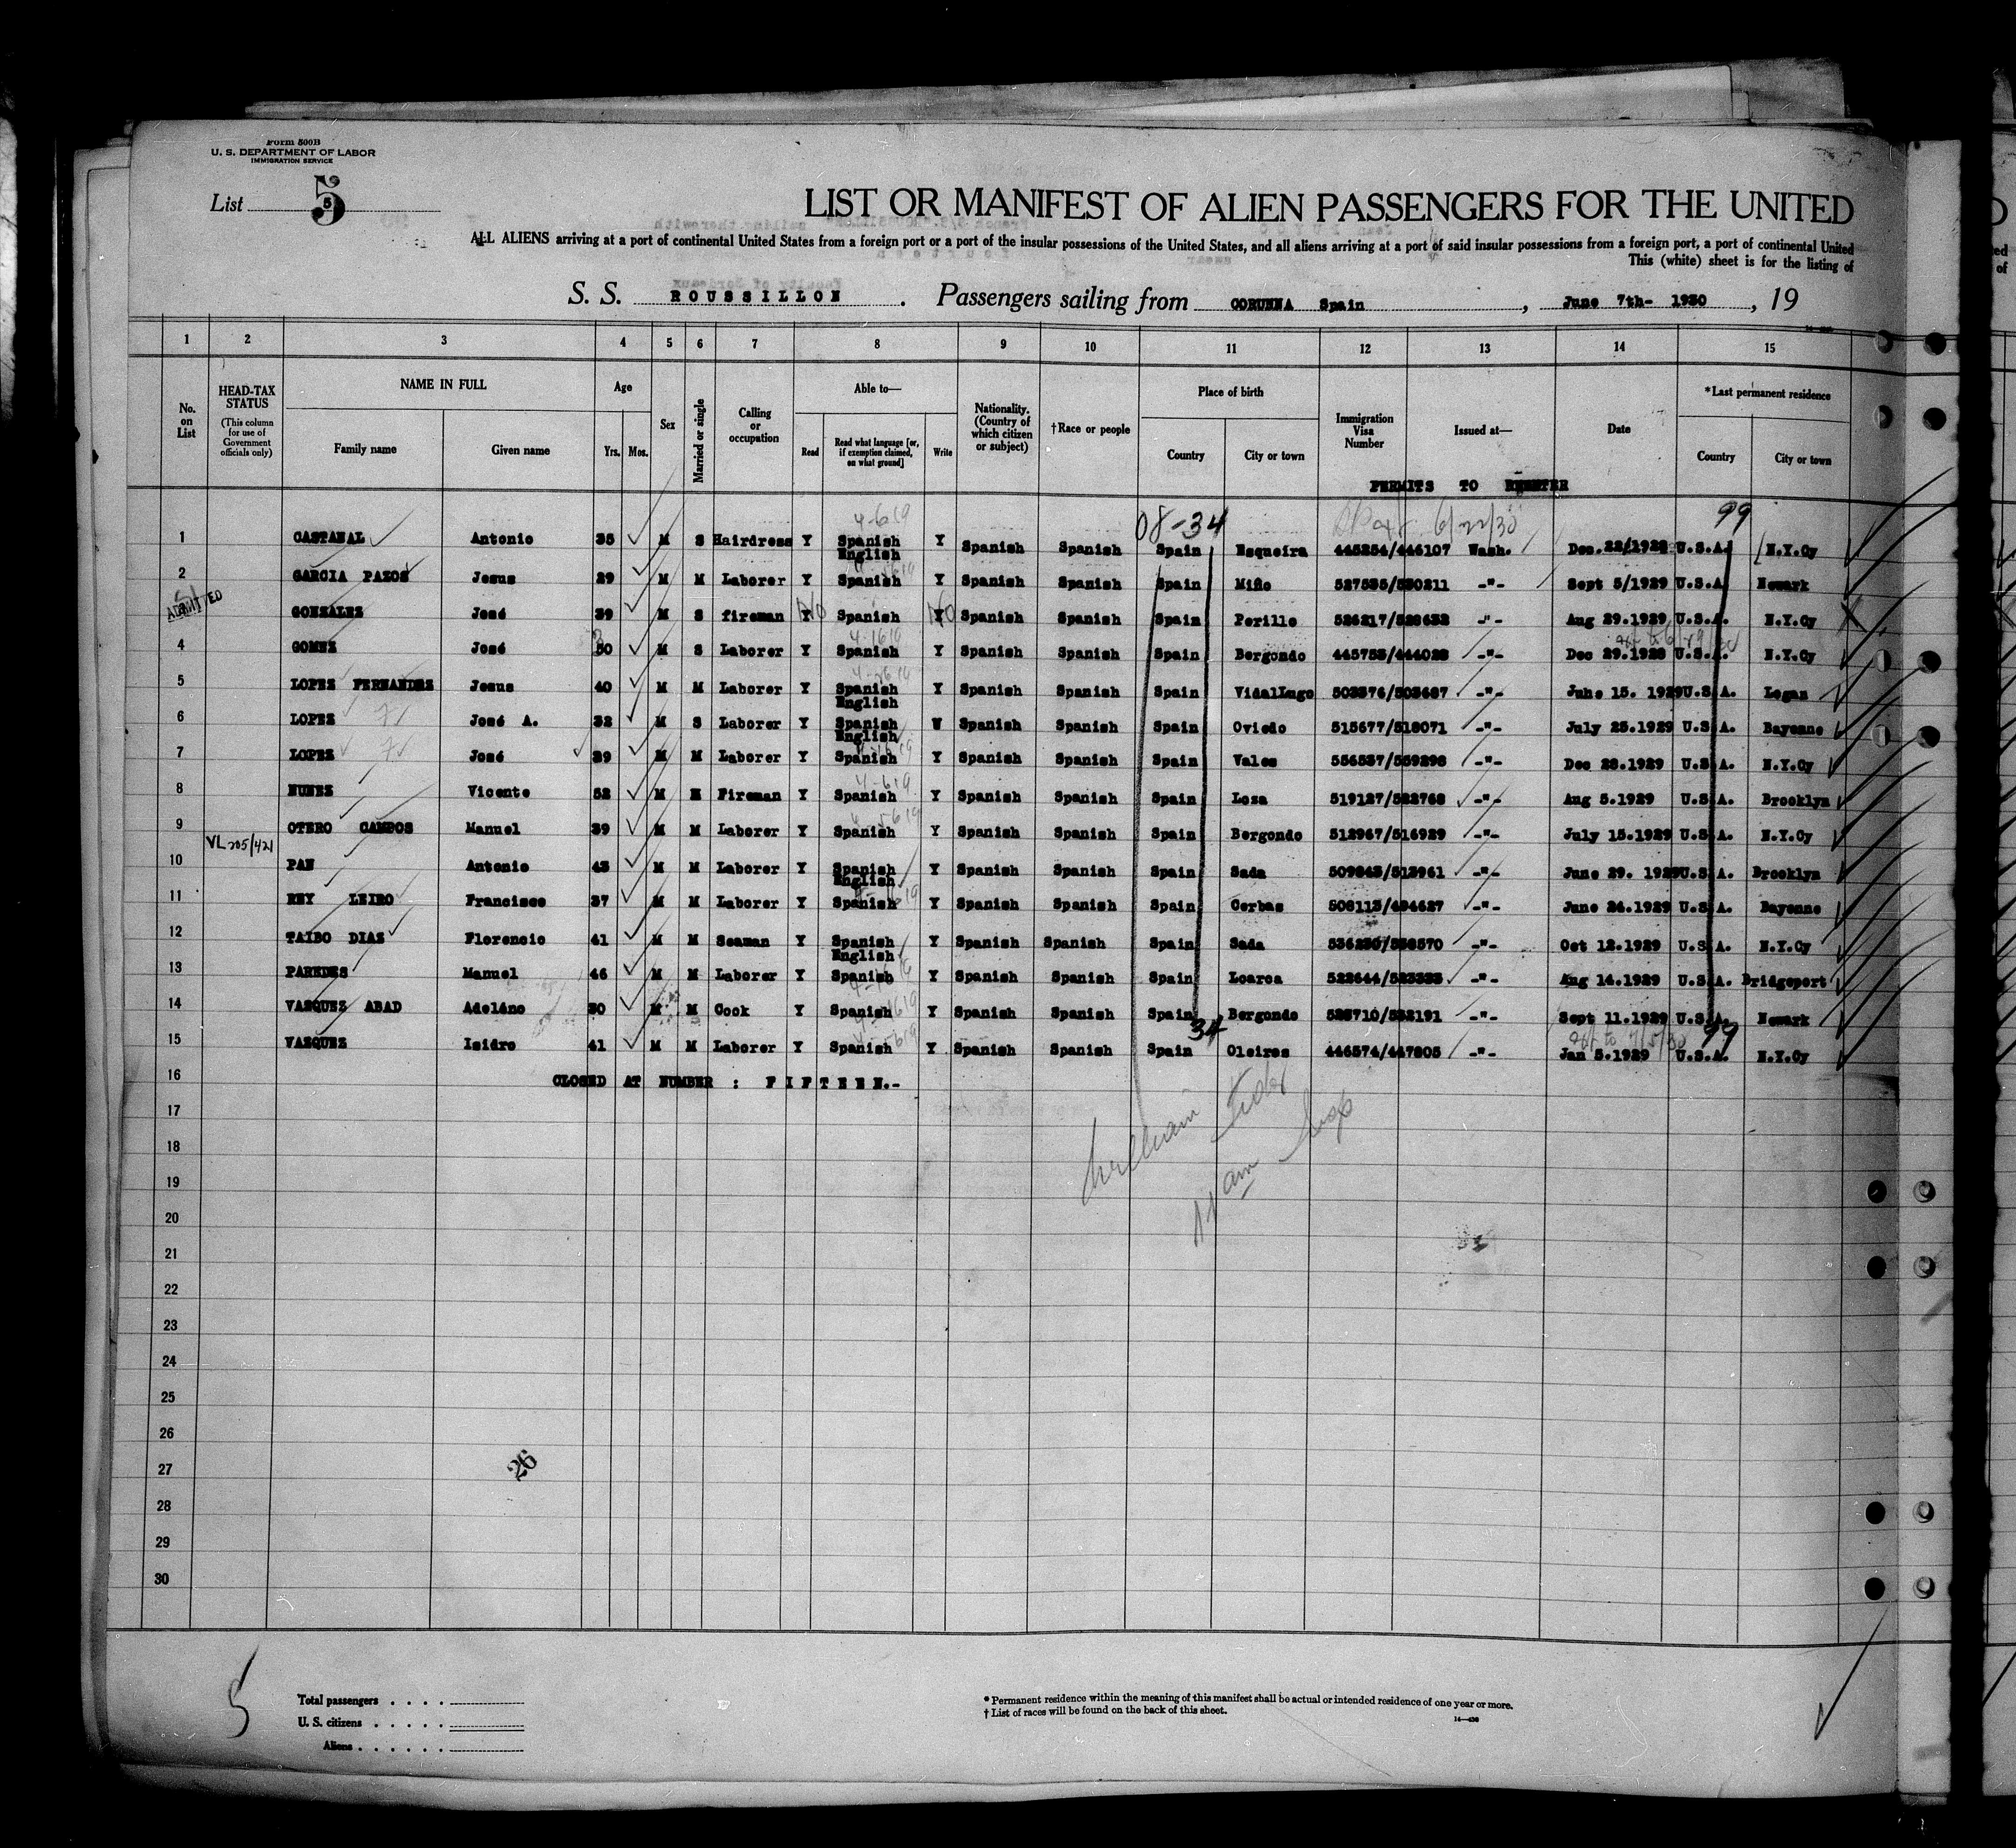 Form 500B
U. S. DEPARTMENT OF LABOR
IMMIGRATION SERVICE
List 5
LIST OR MANIFEST OF ALIEN PASSENGERS FOR THE UNITED
ALL ALIENS arriving at a port of continental United States from a foreign port or a port of the insular possessions of the United States, and all aliens arriving at a port of said insular possessions from a foreign port, a port of continental United
This (white) sheet is for the listing of
S. S. ROUSSILLON . Passengers sailing from CORUNNA Spain , June 7th- 1930 , 19
1 2 3 4 5 6 7 8 9 10 11 12 13 14 15
No. on List
HEAD-TAX STATUS (This column for use of Government officials only)
NAME IN FULL Family name Given name
Age Yrs. Mos.
Sex
Married or single
Calling or occupation
Able to— Read Read what language [or, if exemption claimed, on what ground] Write
Nationality. (Country of which citizen or subject)
†Race or people
Place of birth Country City or town
Immigration Visa Number
Issued at—
Date
*Last permanent residence Country City or town
PERMITS TO REENTER
08-34 6/22/30 99
1 CASTANAL Antonio 35 M S Hairdress Y Spanish English Y Spanish Spanish Spain Esqueira 445254/446107 Wash. Dec. 22/1928 U.S.A. N.Y.Cy
2 GARCIA PAZOS Jesus 29 M M Laborer Y Spanish Y Spanish Spanish Spain Miño 527535/530211 -"- Sept 5/1929 U.S.A. Newark
ADMITTED GONZALEZ José 39 M S fireman Y No Spanish Y No Spanish Spanish Spain Perillo 526217/528632 -"- Aug 29.1929 U.S.A. N.Y.Cy
4 GOMEZ José 30 M S Laborer Y Spanish Y Spanish Spanish Spain Bergondo 445753/444028 -"- Dec 29.1928 U.S.A. N.Y.Cy
5 LOPEZ FERNANDEZ Jesus 40 M M Laborer Y Spanish English Y Spanish Spanish Spain VidalLugo 503576/503687 -"- June 15. 1929 U.S.A. Logan
6 LOPEZ José A. 32 M S Laborer Y Spanish English W Spanish Spanish Spain Oviedo 515677/518071 -"- July 25.1929 U.S.A. Bayonne
7 LOPEZ José 39 M M Laborer Y Spanish Y Spanish Spanish Spain Vales 556537/559298 -"- Dec 28.1929 U.S.A. N.Y.Cy
8 NUNEZ Vicente 52 M M Fireman Y Spanish Y Spanish Spanish Spain Loza 519127/522768 -"- Aug 5.1929 U.S.A. Brooklyn
9 OTERO CAMPOS Manuel 39 M M Laborer Y Spanish Y Spanish Spanish Spain Bergondo 512967/516929 -"- July 15.1929 U.S.A. N.Y.Cy
VL 205/421
10 PAN Antonio 43 M M Laborer Y Spanish English Y Spanish Spanish Spain Sada 509843/513961 -"- June 29. 1929 U.S.A. Brooklyn
11 REY LEIRO Francisco 37 M M Laborer Y Spanish Y Spanish Spanish Spain Cerbas 508113/494627 -"- June 24.1929 U.S.A. Bayonne
12 TAIBO DIAZ Florencio 41 M M Seaman Y Spanish English Y Spanish Spanish Spain Sada -"- Oct 12.1929 U.S.A. N.Y.Cy
13 PAREDES Manuel 46 M M Laborer Y Spanish Y Spanish Spanish Spain Loaroa 522644/523333 -"- Aug 14.1929 U.S.A. Bridgeport
14 VASQUEZ ABAD Adoláno 30 M M Cook Y Spanish Y Spanish Spanish Spain Bergondo 528710/532191 -"- Sept 11.1929 U.S.A. Newark
34 99
15 VAZQUEZ Isidro 41 M M Laborer Y Spanish Y Spanish Spanish Spain Oleiros 446574/447805 -"- Jan 5.1929 U.S.A. N.Y.Cy
16 CLOSED AT NUMBER : F I F T E E N.-
17
18
19
20
21
22
23
24
25
26
27
28
29
30
William
Insp
26
5
Total passengers . . . .
U. S. citizens . . . . .
Aliens . . . . . .
* Permanent residence within the meaning of this manifest shall be actual or intended residence of one year or more.
† List of races will be found on the back of this sheet.